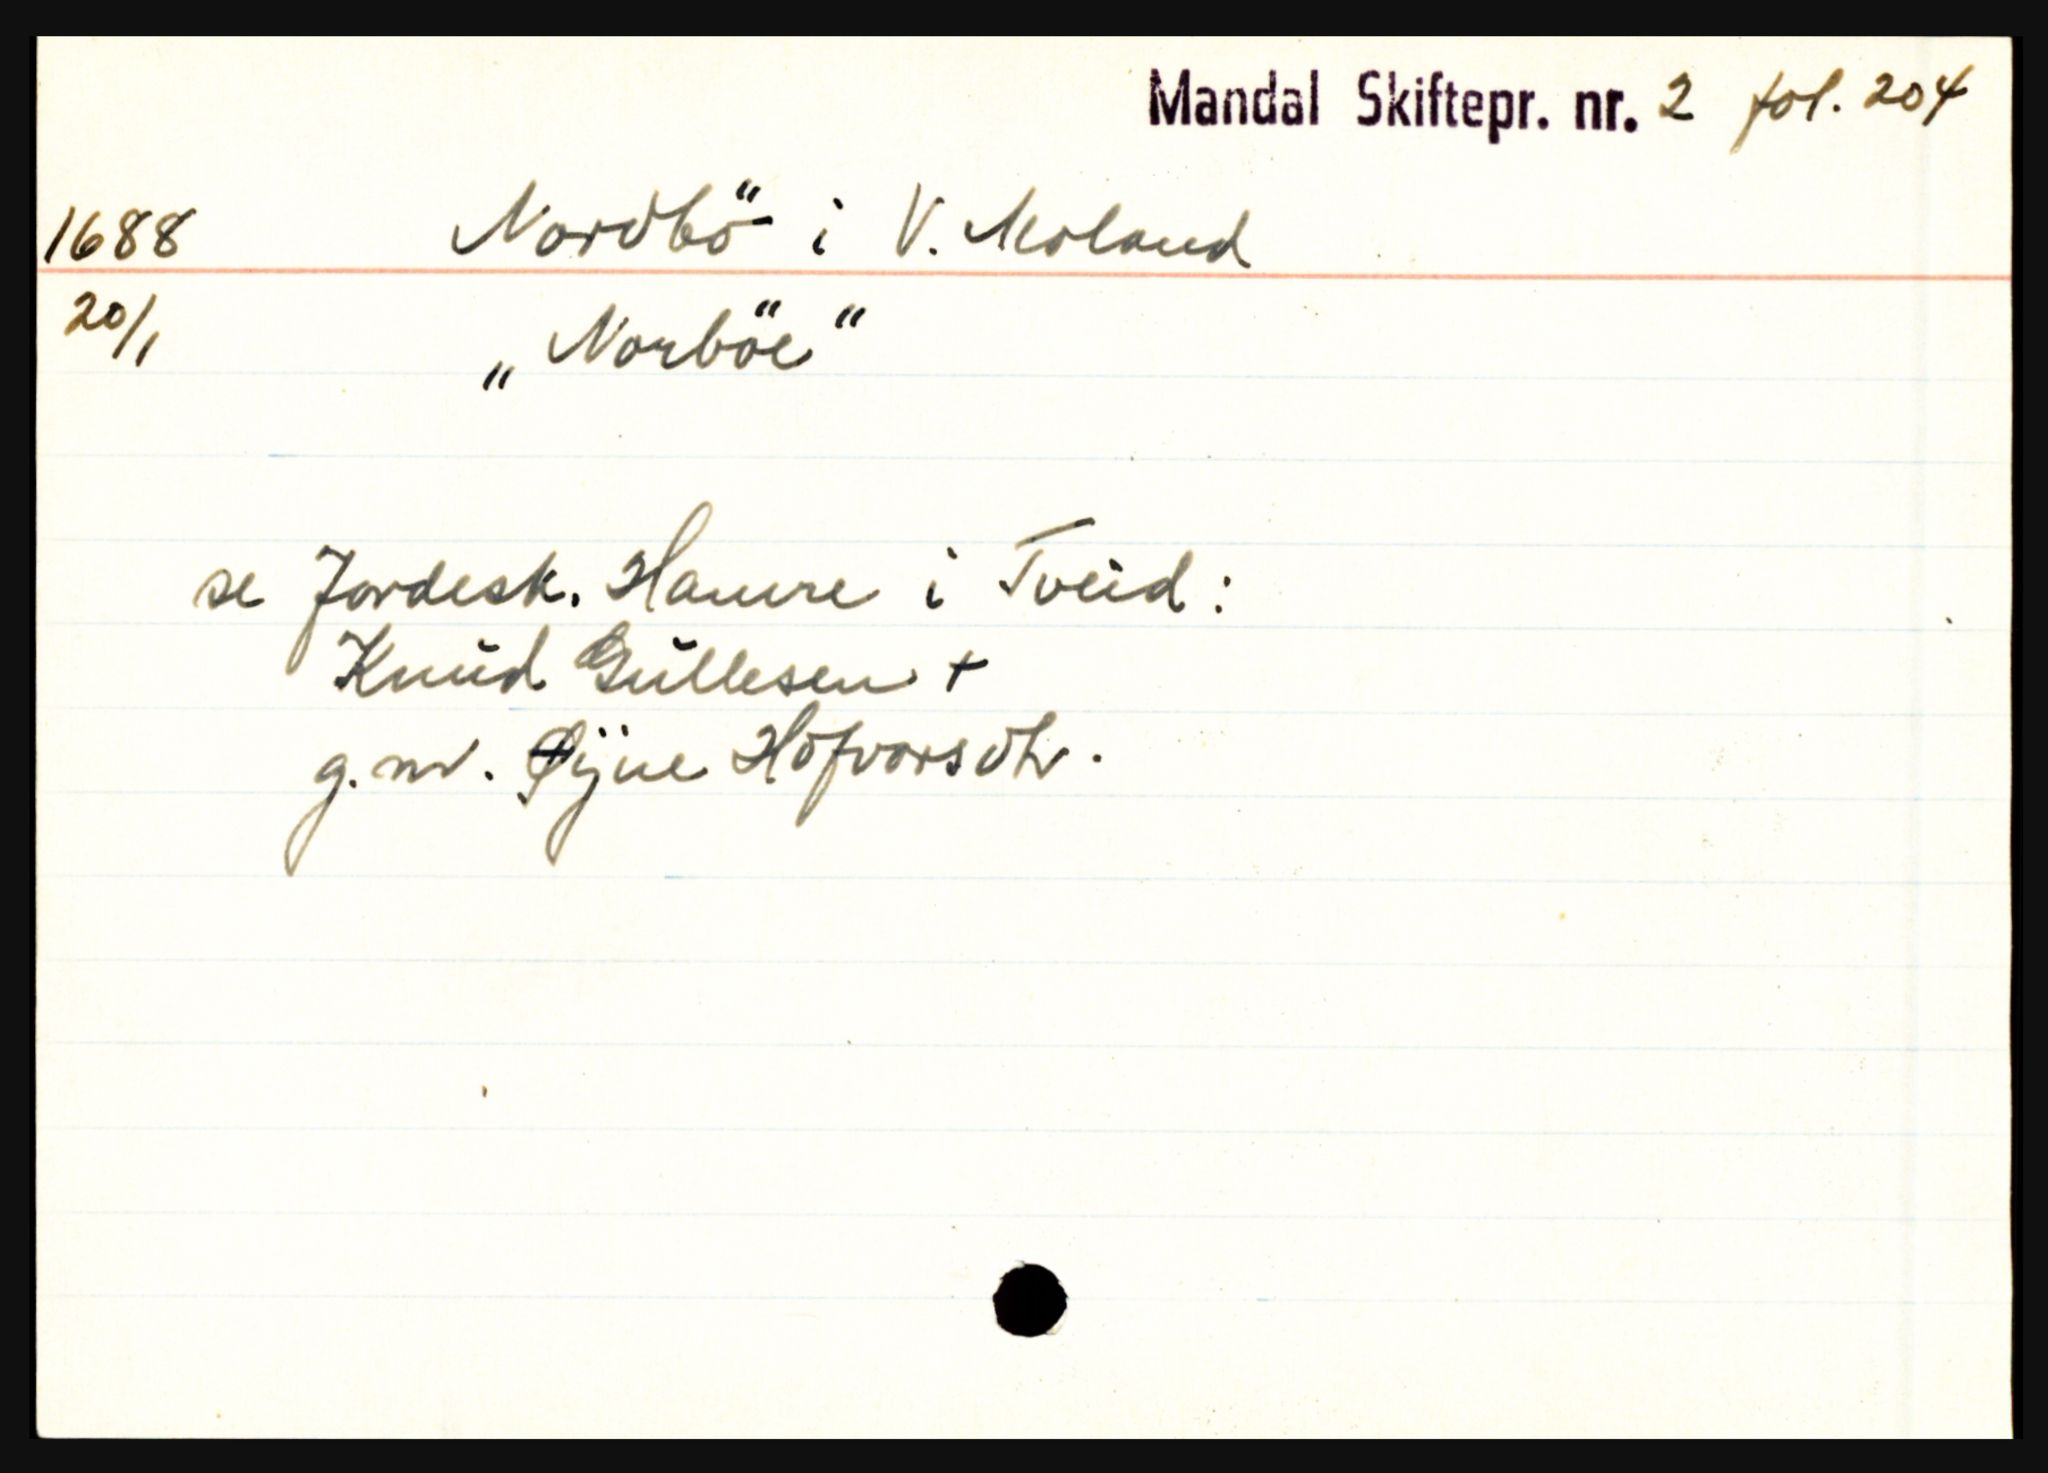 Mandal Skiftepr. nr. 2 fol. 204
1688 Nordbö i V. Moland
20/1 „Norböe“
se Jordesk. Hamre i Tveid:
Knŭd Gŭllesen +
g.m. Øÿne Hofvorsdtr.